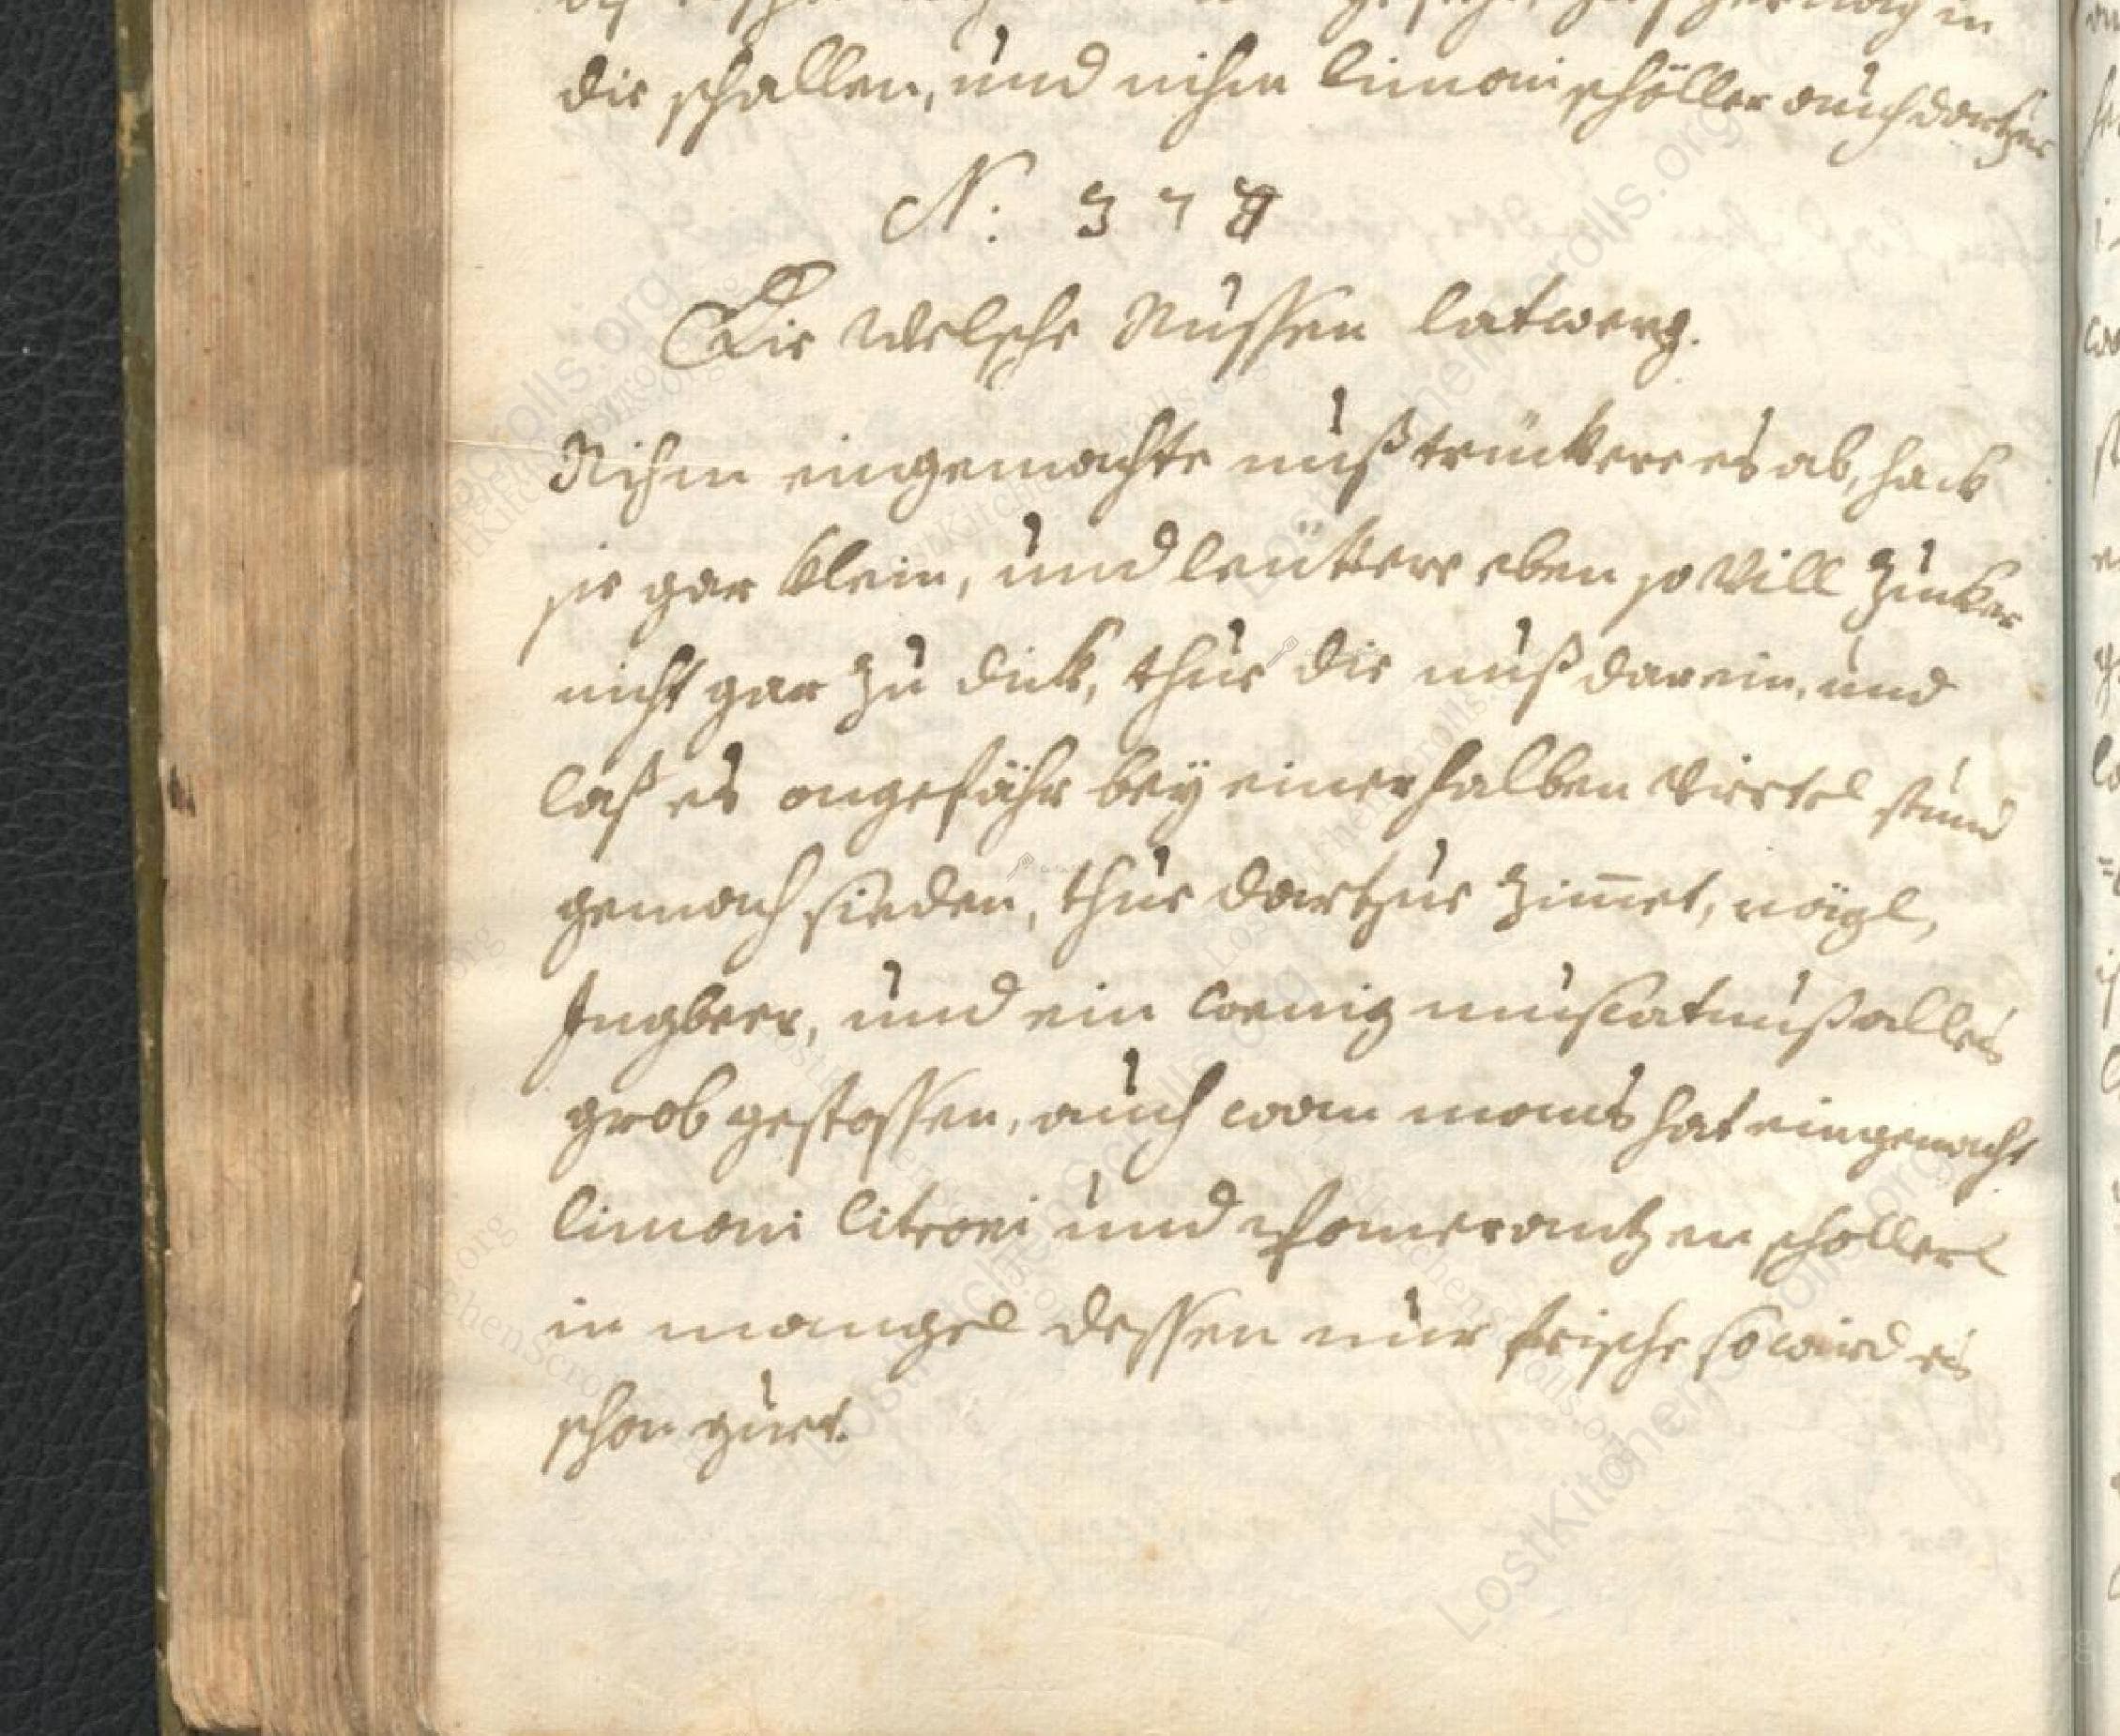 die schallen, und nihm limoni schöller auch dartzue
N: 378
Die Welsche Nussen latwerg.
Nihm eingemachte nuß trückere es ab, hack
sie gar klein, und leüttere eben so Vill Zucker
nicht gar zu dick, thue die nuß darein, und
laß es ongefähr beÿ einer halben Viertel stund
gemach sieden, thue dartzue Zimmet, nägl,
Ingbeer, und ein wenig muscatnuß alles
grob gestossen, auch wan mans hat eingemacht
limoni Citroni und Pomerantzen schöllerl
in mangel dessen nur frische so wird es
schon guet.